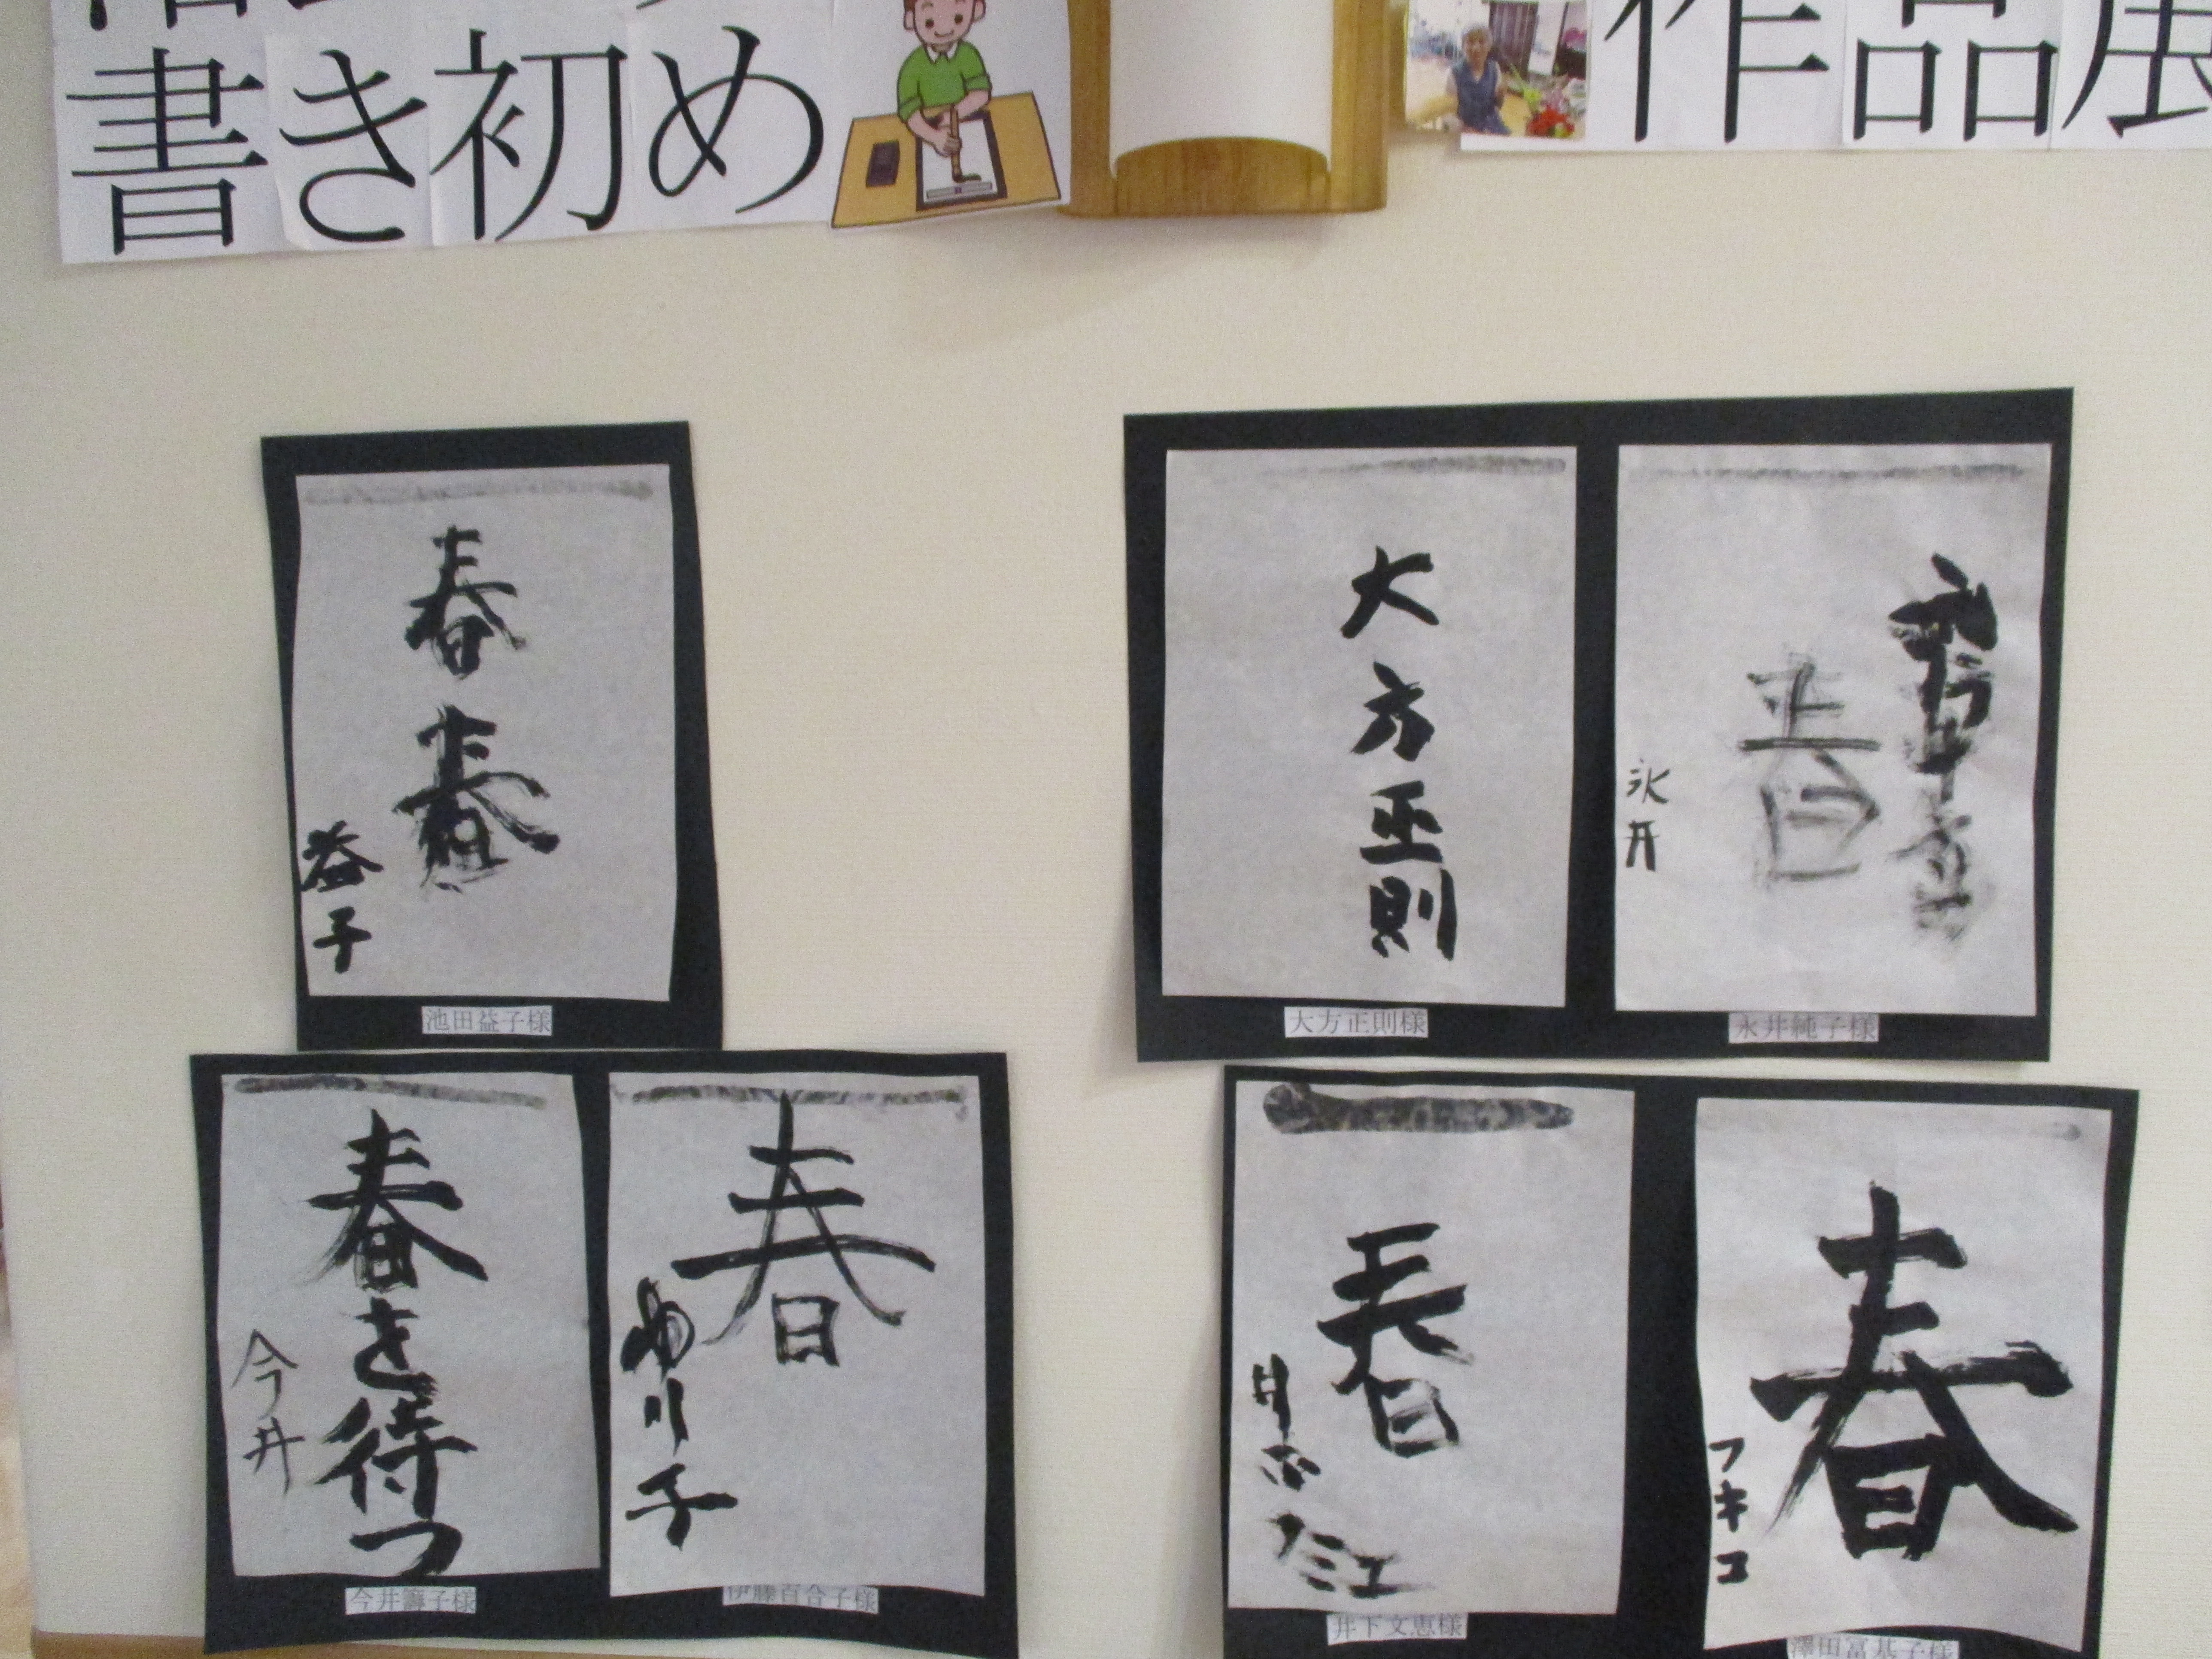 書き初め
作品展
春
春
益子
池田益子様
大方正則
大方正則様
春
永井
永井純子様
春を待つ
今井
今井籌子様
春
ゆり子
伊藤百合子様
春
井下
フミエ
井下文恵様
春
フキコ
澤田富基子様